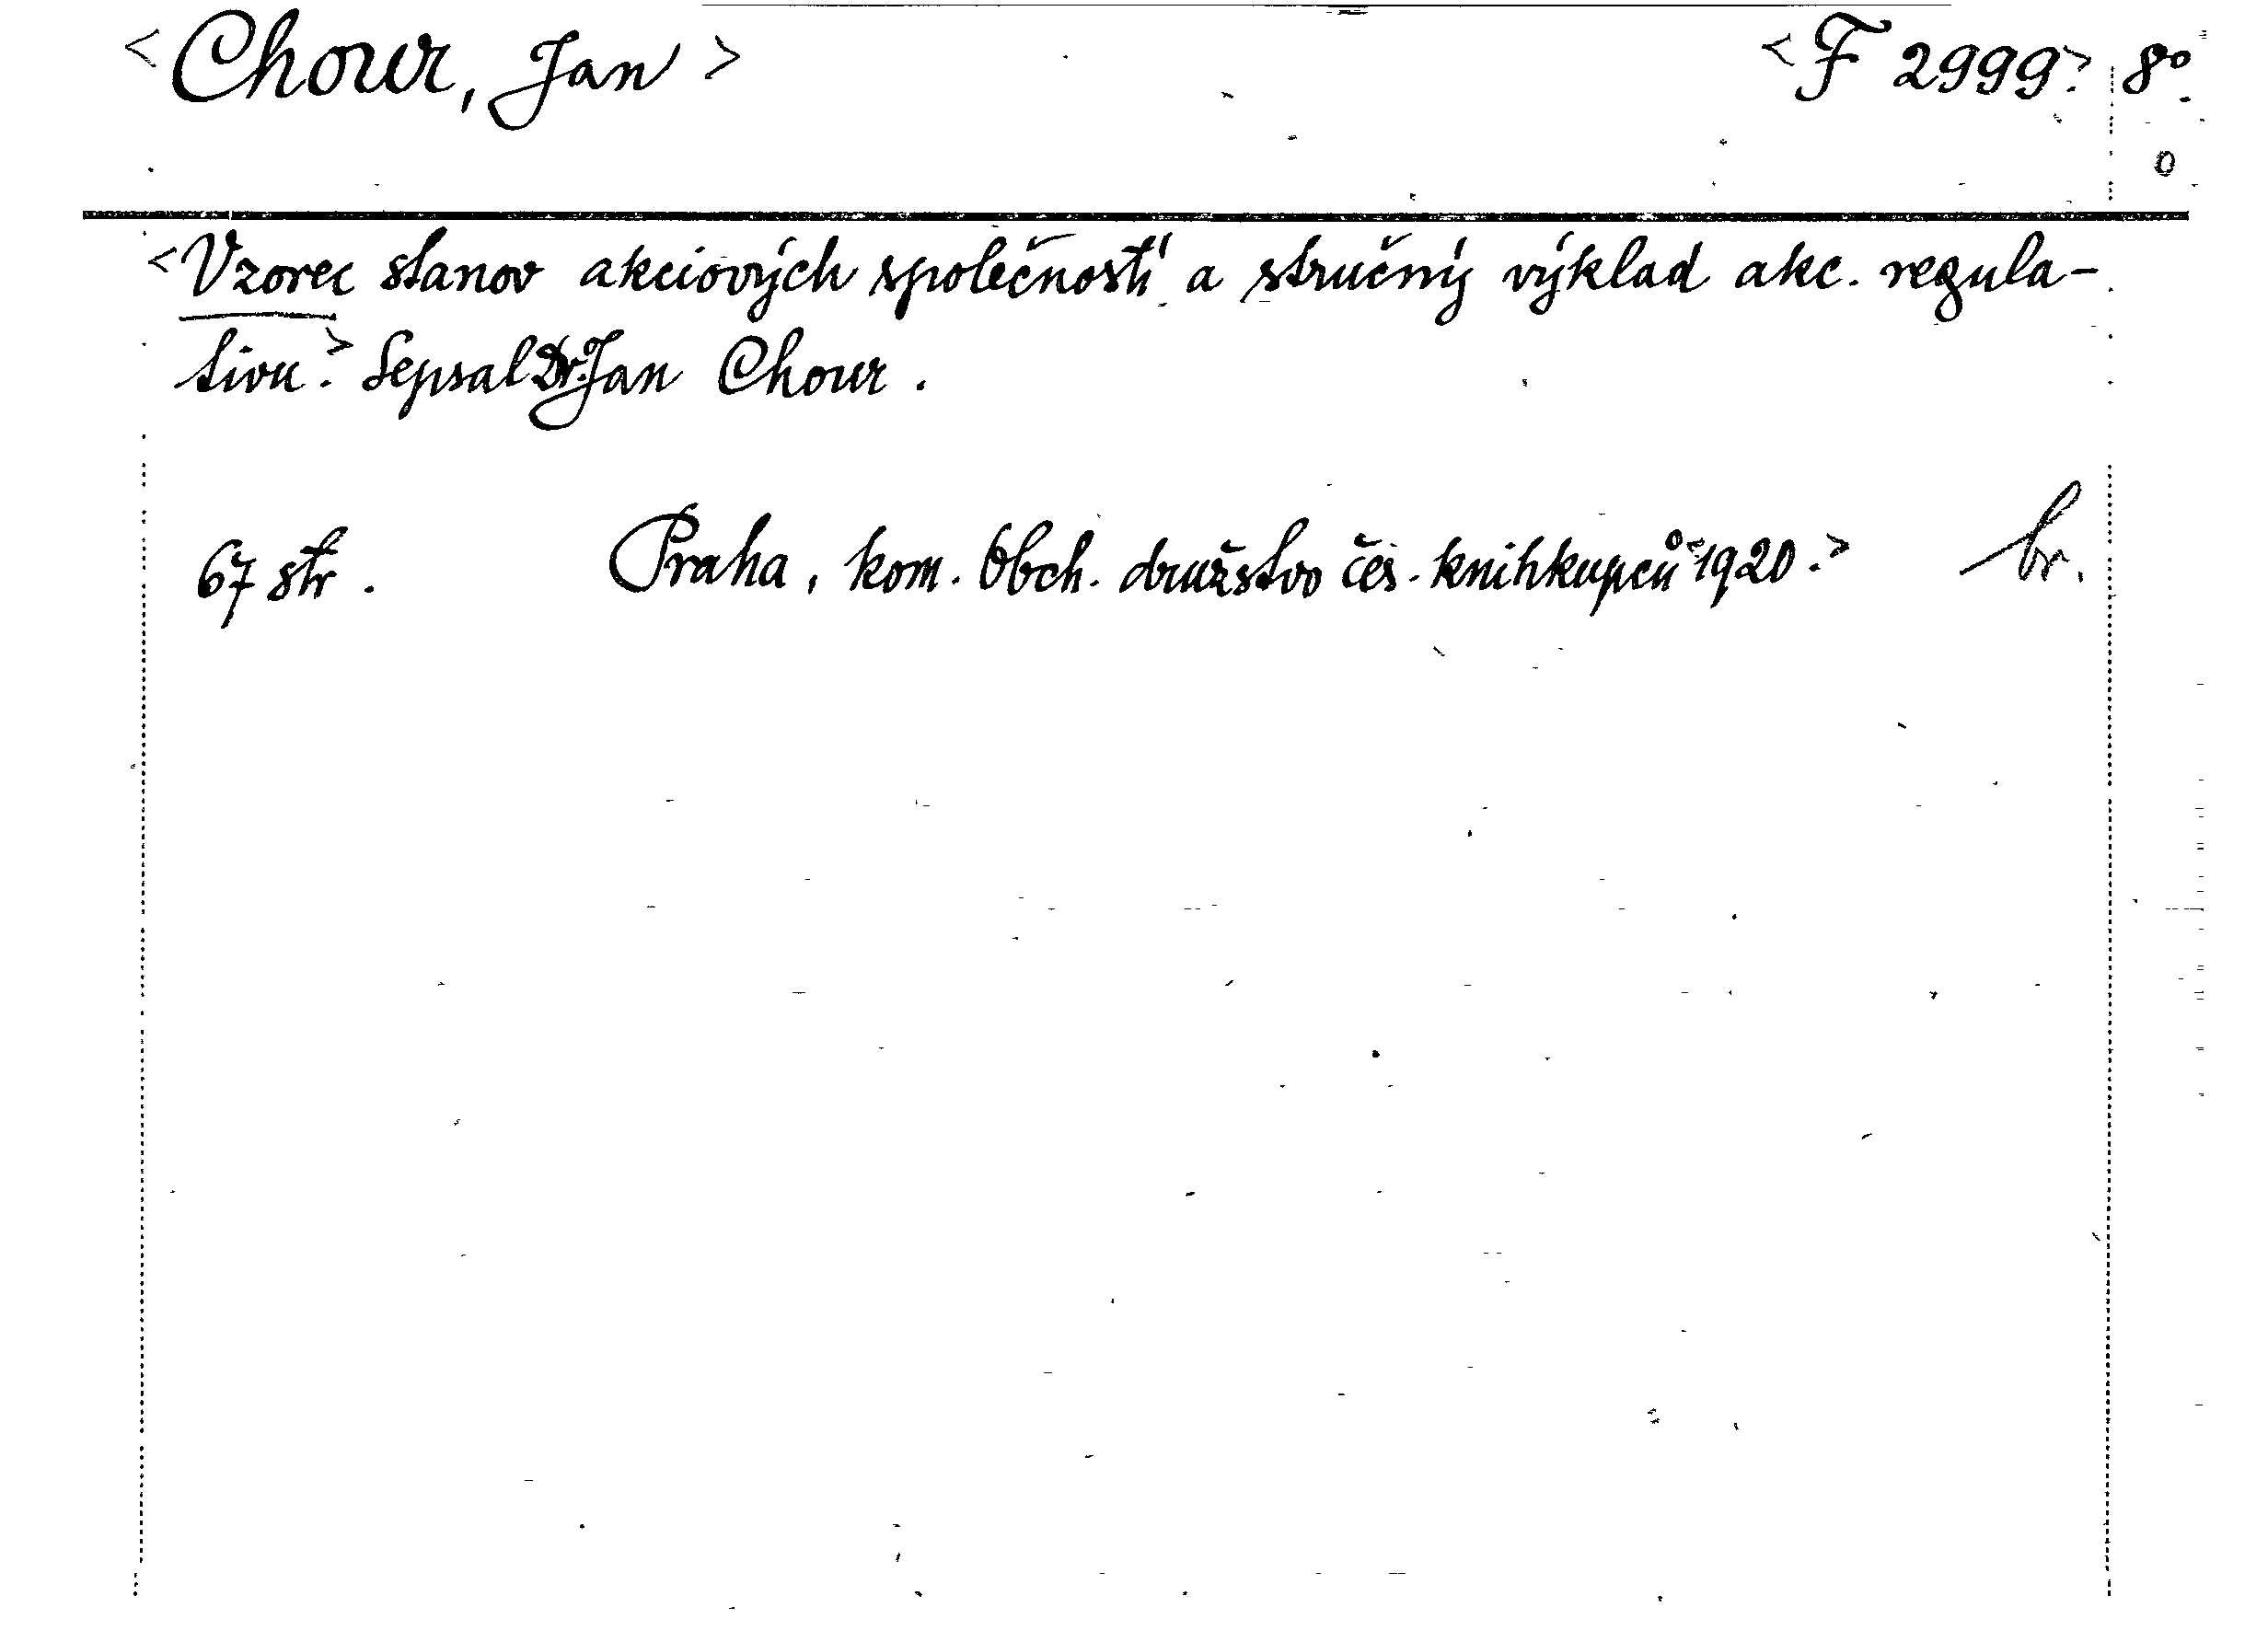 <Chour, Jan> <F 2999.> 8°.
0
<Vzorec stanov akciových společností a stručný výklad akc. regula-
tivu.> Sepsal Dr. Jan Chour.
67 str. Praha, kom. Obch. družstvo čes. knihkupců <1920.> br.